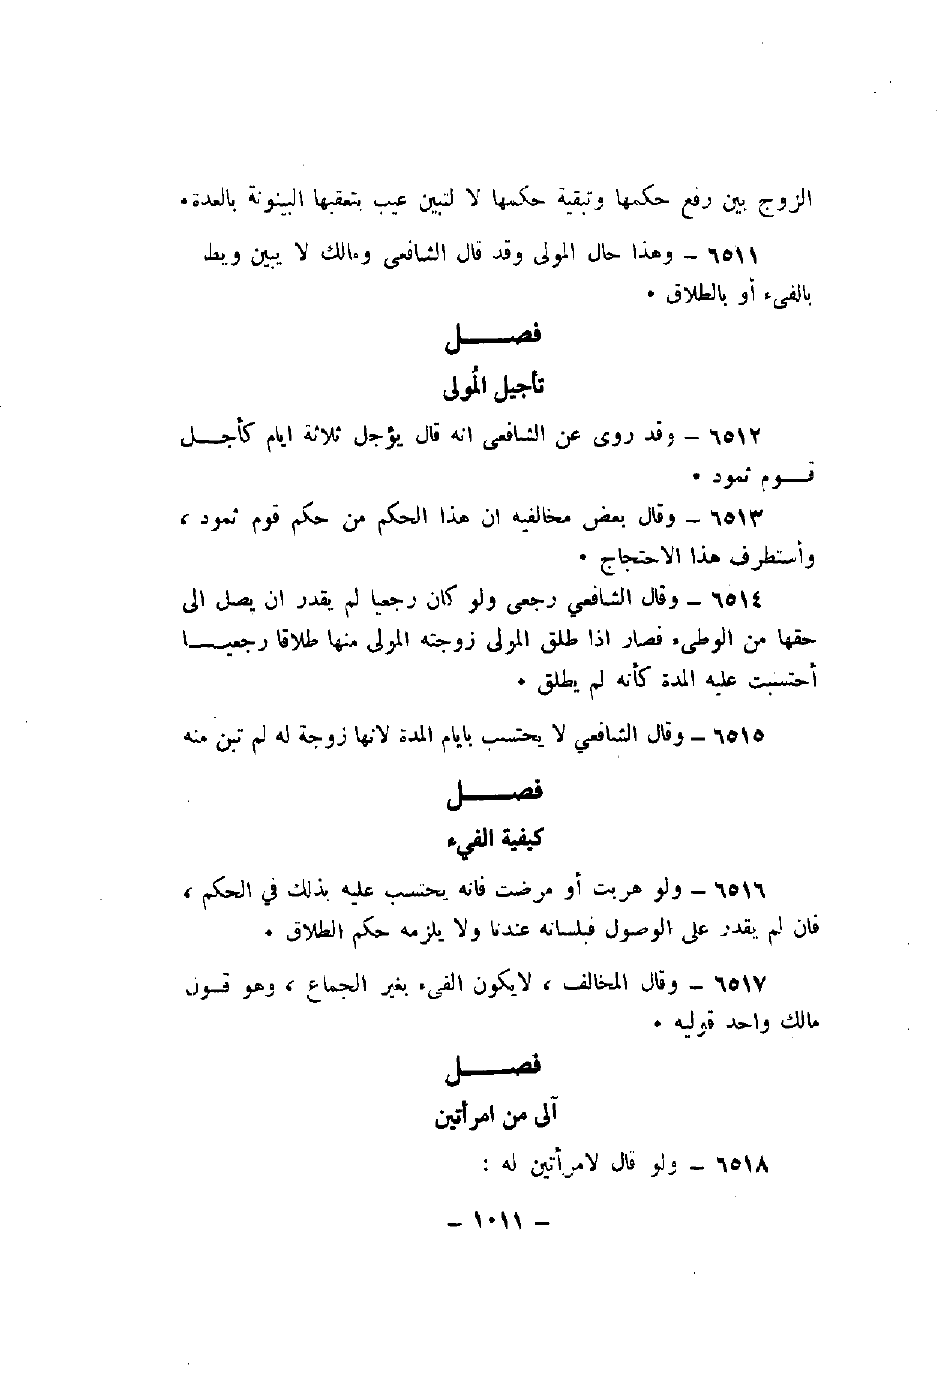 الزوج بين رفع حكمها وتبقية حكمها لا لتبين عيب يتعقبها البينونة بالعدة٠
٦٥١١ – وهذا حال المولى وقد قال الشافعى ومالك لا يبين ويط
بالفىء أو بالطلاق ٠
فصــــل
تأجيل المُولى
٦٥١٢ – وقد روى عن الشافعى انه قال يؤجل ثلاثة ايام كأجــل
قــوم ثمود ٠
٦٥١٣ – وقال بعض مخالفيه ان هذا الحكم من حكم قوم ثمود ،
وأستطرف هذا الاحتجاج ٠
٦٥١٤ – وقال الشافعي رجعى ولو كان رجعيا لم يقدر ان يصل الى
حقها من الوطىء فصار اذا طلق المولى زوجته المولى منها طلاقا رجعيــــا
أحتسبت عليه المدة كأنه لم يطلق ٠
٦٥١٥ – وقال الشافعي لا يحتسب بايام المدة لانها زوجة له لم تبن منه
فصــــل
كيفية الفيء
٦٥١٦ – ولو هربت أو مرضت فانه يحتسب عليه بذلك في الحكم ،
فان لم يقدر على الوصول فبلسانه عندنا ولا يلزمه حكم الطلاق ٠
٦٥١٧ – وقال المخالف ، لايكون الفىء بغير الجماع ، وهو قــول
مالك واحد قوليه ٠
فصــــل
آلى من امرأتين
٦٥١٨ – ولو قال لامرأتين له :
– ١٠١١ –